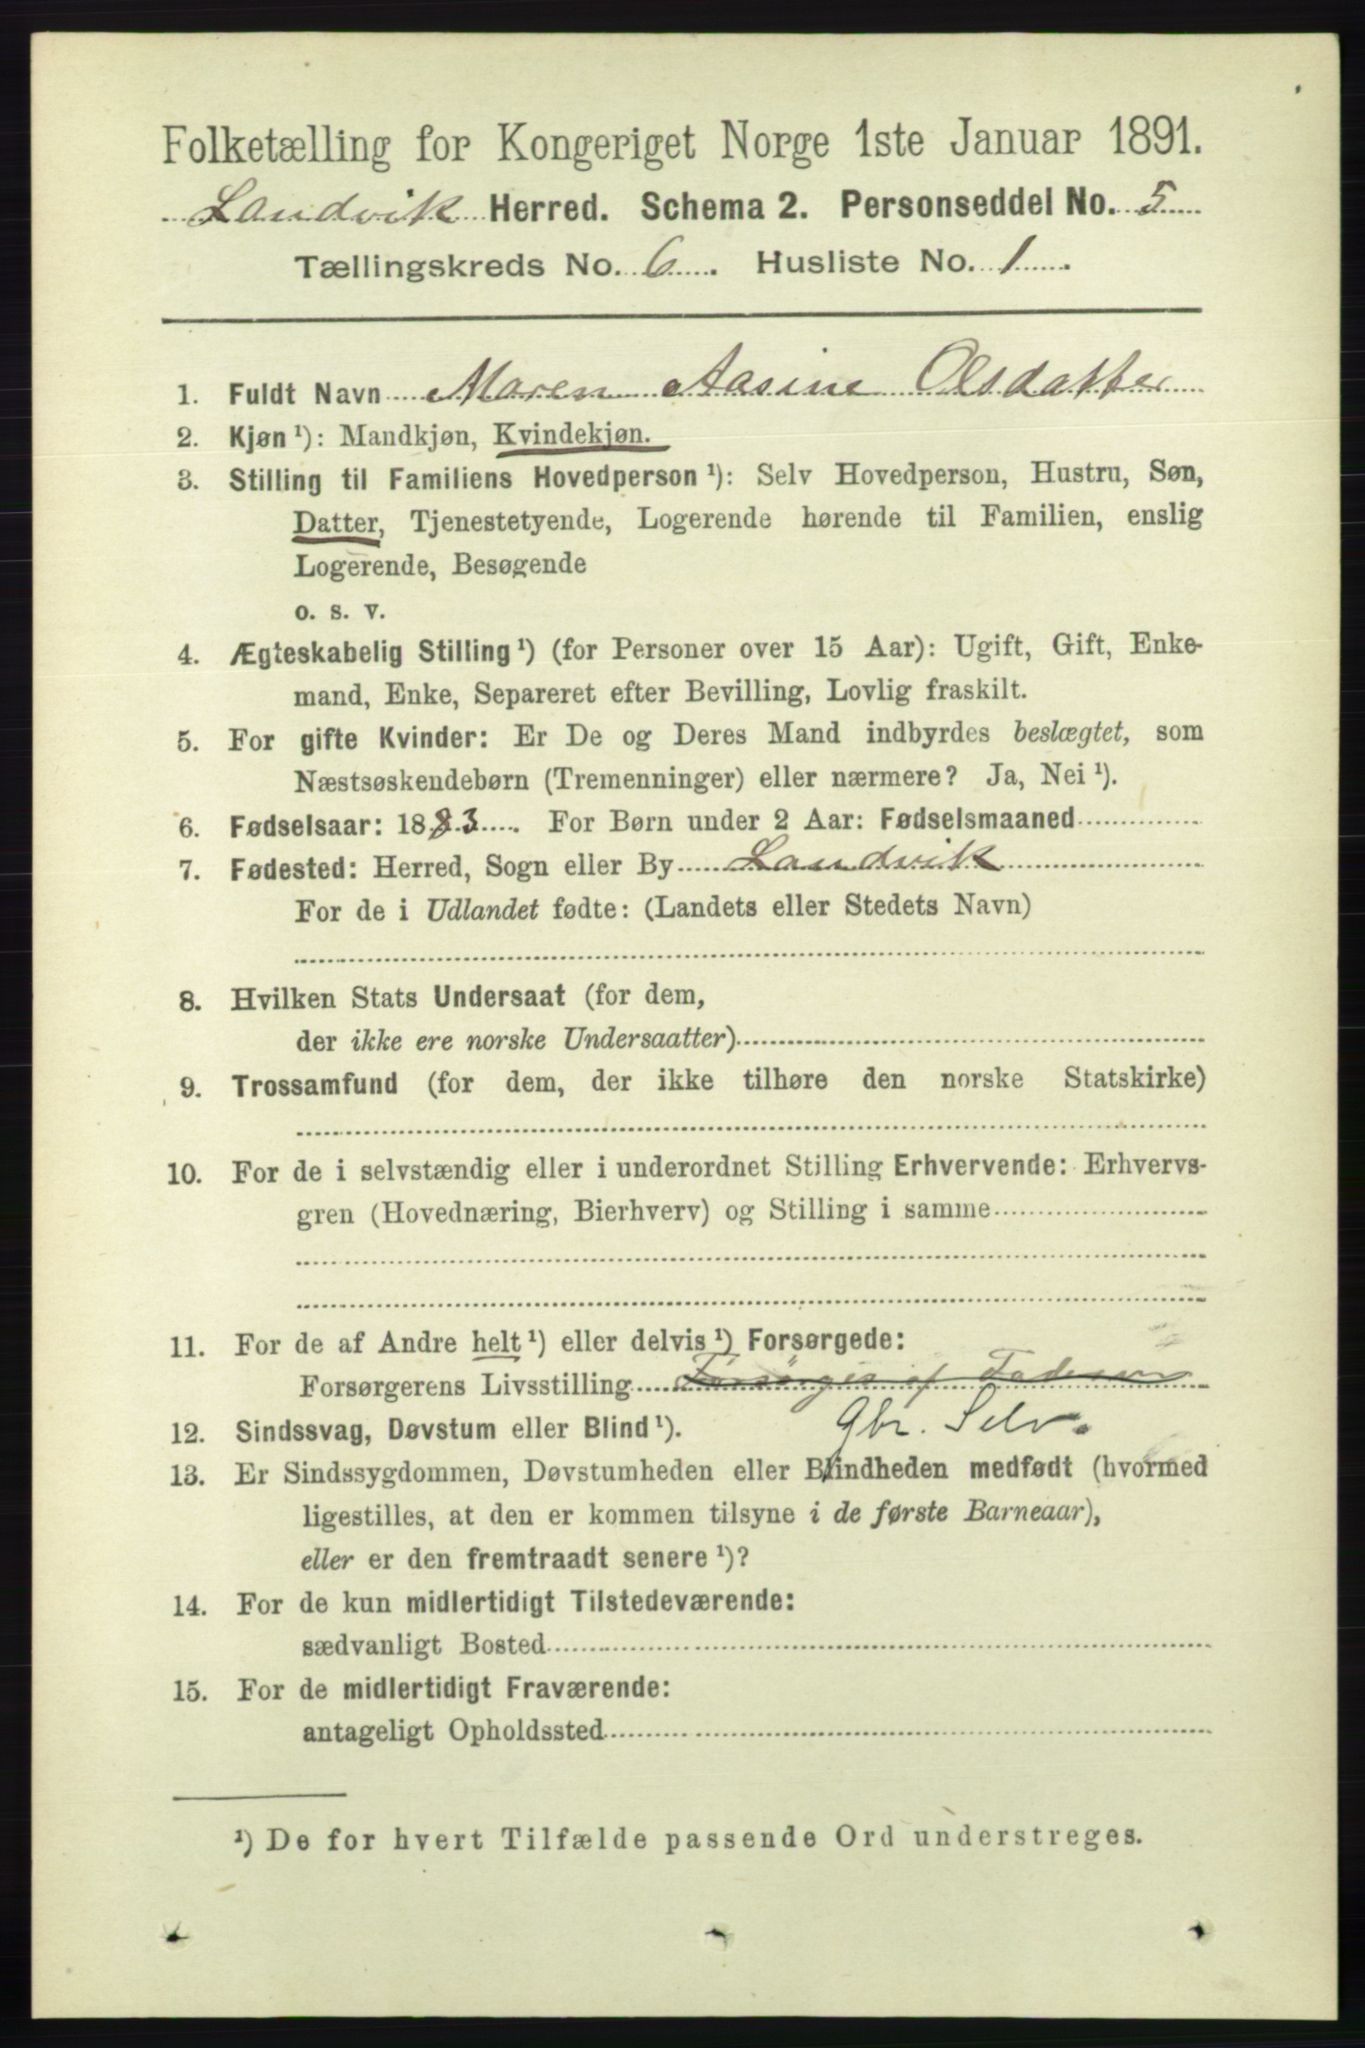 Folketælling for Kongeriget Norge 1ste Januar 1891.
Landvik Herred. Schema 2. Personseddel No. 5
Tællingskreds No. 6. Husliste No. 1.
1. Fuldt Navn Maren Aasine Olsdatter
2. Kjøn ¹): Mandkjøn, Kvindekjøn.
3. Stilling til Familiens Hovedperson ¹): Selv Hovedperson, Hustru, Søn,
Datter, Tjenestetyende, Logerende hørende til Familien, enslig
Logerende, Besøgende
o. s. v.
4. Ægteskabelig Stilling ¹) (for Personer over 15 Aar): Ugift, Gift, Enke-
mand, Enke, Separeret efter Bevilling, Lovlig fraskilt.
5. For gifte Kvinder: Er De og Deres Mand indbyrdes beslægtet, som
Næstsøskendebørn (Tremenninger) eller nærmere? Ja, Nei ¹).
6. Fødselsaar: 1883. For Børn under 2 Aar: Fødselsmaaned
7. Fødested: Herred, Sogn eller By Landvik
For de i Udlandet fødte: (Landets eller Stedets Navn)
8. Hvilken Stats Undersaat (for dem,
der ikke ere norske Undersaatter)
9. Trossamfund (for dem, der ikke tilhøre den norske Statskirke)
10. For de i selvstændig eller i underordnet Stilling Erhvervende: Erhvervs-
gren (Hovednæring, Bierhverv) og Stilling i samme
11. For de af Andre helt ¹) eller delvis ¹) Forsørgede:
Forsørgerens Livsstilling Forsørges af Faderen
Gbr. Selv.
12. Sindssvag, Døvstum eller Blind ¹).
13. Er Sindssygdommen, Døvstumheden eller Blindheden medfødt (hvormed
ligestilles, at den er kommen tilsyne i de første Barneaar),
eller er den fremtraadt senere ¹)?
14. For de kun midlertidigt Tilstedeværende:
sædvanligt Bosted
15. For de midlertidigt Fraværende:
antageligt Opholdssted
¹) De for hvert Tilfælde passende Ord understreges.